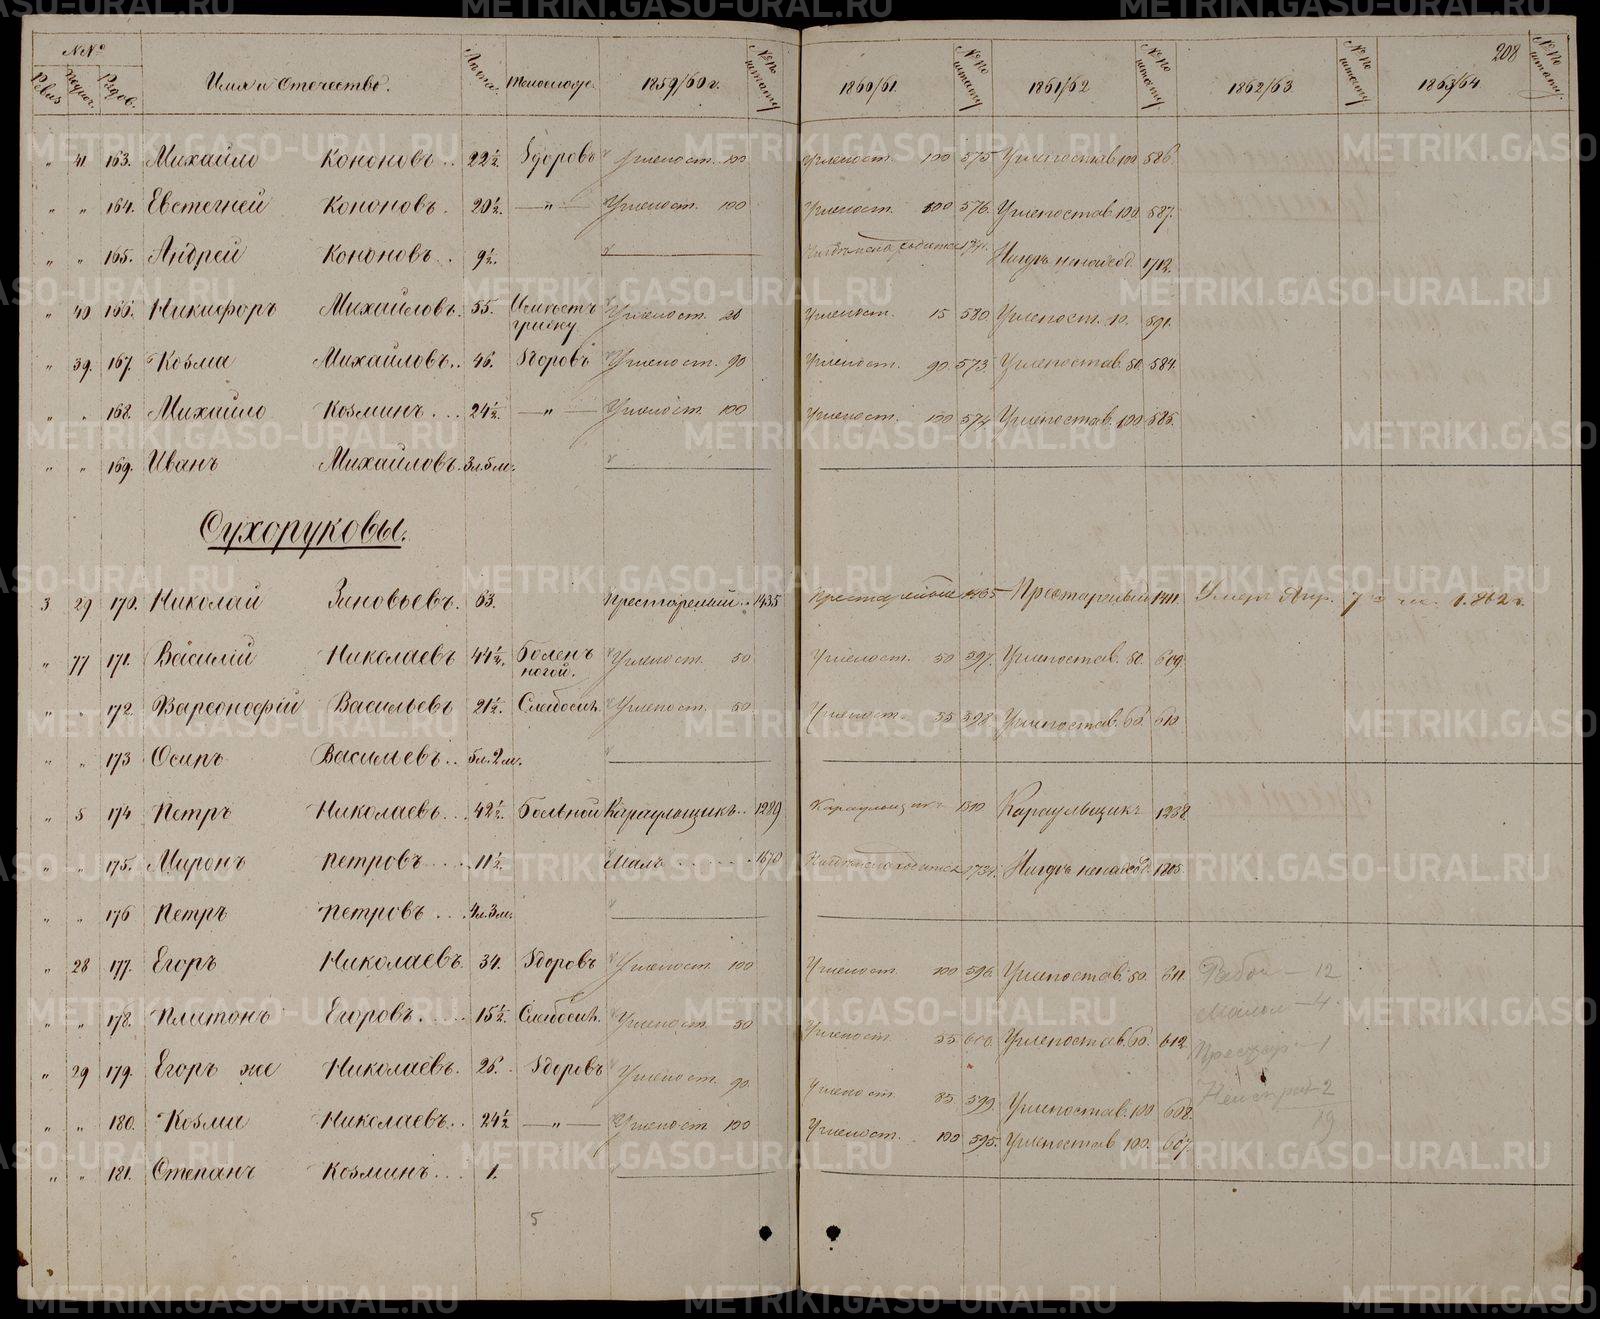 208
№№
Ревиз. Подроч. Рядов. Имя и Отчество. Лета. Телослож. 1859/60 г. №№ по штату 1860/61. №№ по штату 1861/62 №№ по штату 1862/63 №№ по штату 1863/64 №№ по штату
" 41 163. Михайло Кононовъ.. 22½ Здоровъ Углепост. 100 Углепост. 100 575 Углепостав. 100 586.
" " 164. Евстегней Кононовъ. 20½. —"— Углепост. 100 Углепост. 100 576. Углепостав. 100 587.
" " 165. Андрей Кононовъ.. 9½. Нигдѣ ненаход. 1712.
" 40 166. Никифоръ Михайловъ. 55. Углепост. 20 Углепост. 15 580 Углепост. 10. 591.
" 39. 167. Козма Михайловъ.. 46. Здоровъ Углепост. 90 Углепост. 90 573. Углепостав. 80 584.
" " 168. Михайло Козминъ.... 24½. —"— Углепост. 100 Углепост. 100 574 Углепостав. 100 585.
" " 169. Иванъ Михайловъ. 3 л. 5 м.
Сухоруковы.
3 29 170. Николай Зиновьевъ. 63. Престарелый.. 1435 Престарелый 1465 Престарелый 1411. Умеръ Апр. 7 1862 г.
" 77 171. Василій Николаевъ 44½. Боленъ ногой. Углепост. 50 Углепост. 50 597. Углепостав. 50. 609.
" " 172. Варсонофій Васильевъ 21½. Слабосил. Углепост. 50. Углепост. 55 598. Углепостав. 60. 610
" " 173 Осипъ Васильевъ.. 5 л. 2 м.
" 5 174 Петръ Николаевъ... 42½. Больной Караульщикъ.. 1289 Караульщикъ 1310 Караульщикъ 1238
" " 175. Миронъ Петровъ.... 11½. Малъ 1670 1734. Нигдѣ ненаход. 1805.
" " 176 Петръ Петровъ... 4 л. 3 м.
" 28 177. Егоръ Николаевъ. 34. Здоровъ Углепост. 100 Углепост. 100 596. Углепостав. 50. 611. Рабоч — 12
" " 178. Платонъ Егоровъ.... 15½. Слабосил. Углепост. 50 Углепост. 55 600. Углепостав. 60. 612 Малол — 4
" 29 179. Егоръ же Николаевъ. 26. Здоровъ Углепост. 90. Углепост. 85 599. Углепостав. 100 608. Престар — 1
" " 180. Козма Николаевъ.. 24½ —"— Углепост. 100 Углепост. 100 595. Углепостав 100. 607. 2
19
" " 181. Степанъ Козминъ... 1.
5
METRIKI.GASO-URAL.RU